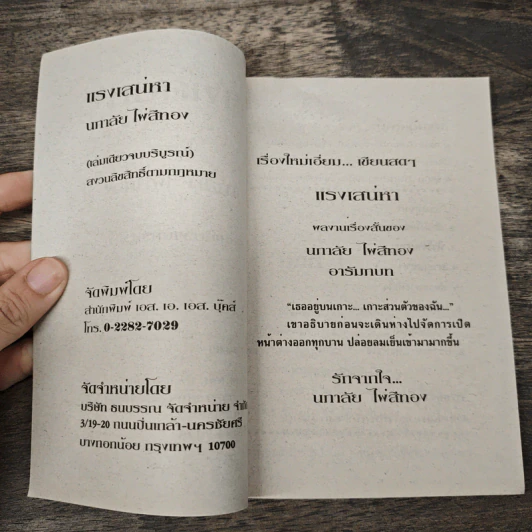 แรงเสน่หา
นภาลัย ไผ่สีทอง
(เล่มเดียวจบบริบูรณ์)
สงวนลิขสิทธิ์ตามกฎหมาย
จัดพิมพ์โดย
สำนักพิมพ์ เอส. เอ. เอส. บุ๊คส์
โทร. 0-2282-7029
จัดจำหน่ายโดย
บริษัท ธนบรรณ จัดจำหน่าย
3/19-20 ถนนปิ่นเกล้า-นครชัยศรี
บางกอกน้อย กรุงเทพฯ 10700
เรื่องใหม่เอี่ยม... เขียนสดๆ
แรงเสน่หา
ผลงานเรื่องสั้นของ
นภาลัย ไผ่สีทอง
อารัมภบท
“เธออยู่บนเกาะ... เกาะส่วนตัวของฉัน...”
เขาอธิบายก่อนจะเดินห่างไปจัดการเปิด
หน้าต่างออกทุกบาน ปล่อยลมเย็นเข้ามามากขึ้น
รักจากใจ...
นภาลัย ไผ่สีทอง